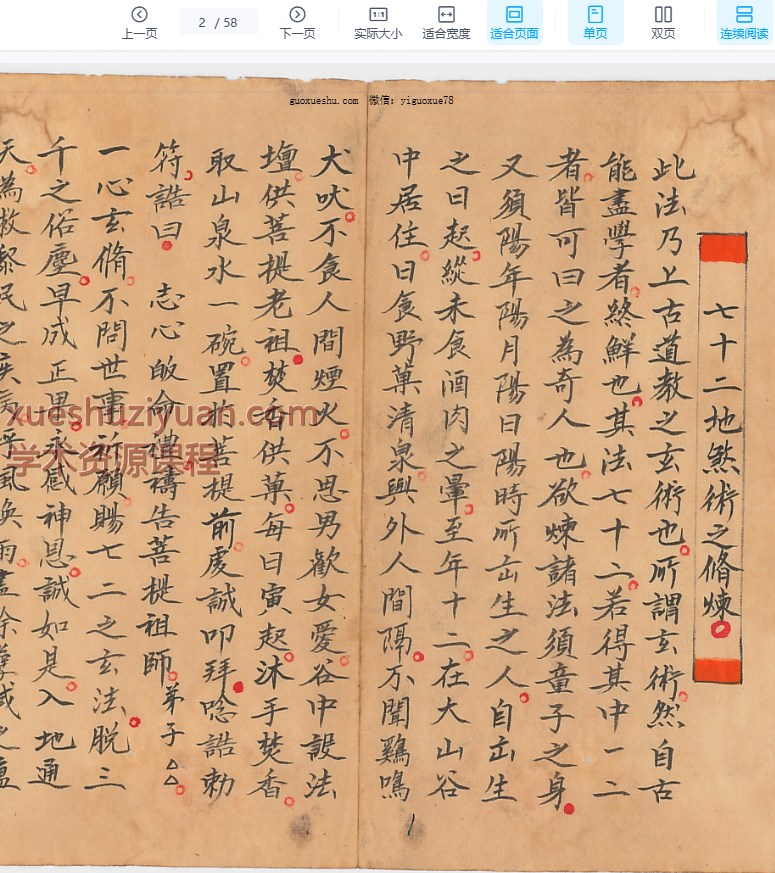 上一页
2 / 58
下一页
实际大小
适合宽度
适合页面
单页
双页
连续阅读
guoxueshu.com 微信: yiguoxue78
七十二地煞術之脩煉
此法乃上古道教之玄術也所謂玄術然自古
能盡學者終鮮也其法七十二若得其中一二
者皆可曰之為奇人也欲煉諸法須童子之身
又須陽年陽月陽日陽時所出生之人自出生
之日起縱未食酒肉之暈至年十二在大山谷
中居住日食野菓清泉與外人間隔不聞鷄鳴
犬吠不食人間煙火不思男歡女愛谷中設法
壇供菩提老祖焚香供菓每日寅起沐手焚香
取山泉水一碗置於菩提前虔誠叩拜唸誥勅
符誥曰 志心皈命禮禱告菩提祖師弟子△△
一心玄脩不問世事祈願賜七二之玄法脱三
千之俗塵早成正果永感神恩誠如是入地通
xueshuziyuan.com
学术资源课程